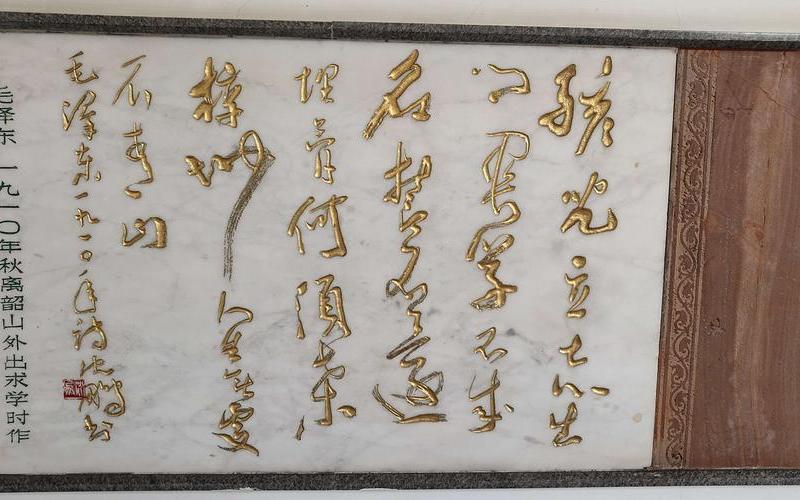 孩儿立志出
乡关学不成
名誓不还
埋骨何须桑
梓地人生无处
不青山
毛泽东一九一〇年诗沈鹏书
毛泽东 一九一〇年秋离韶山外出求学时作